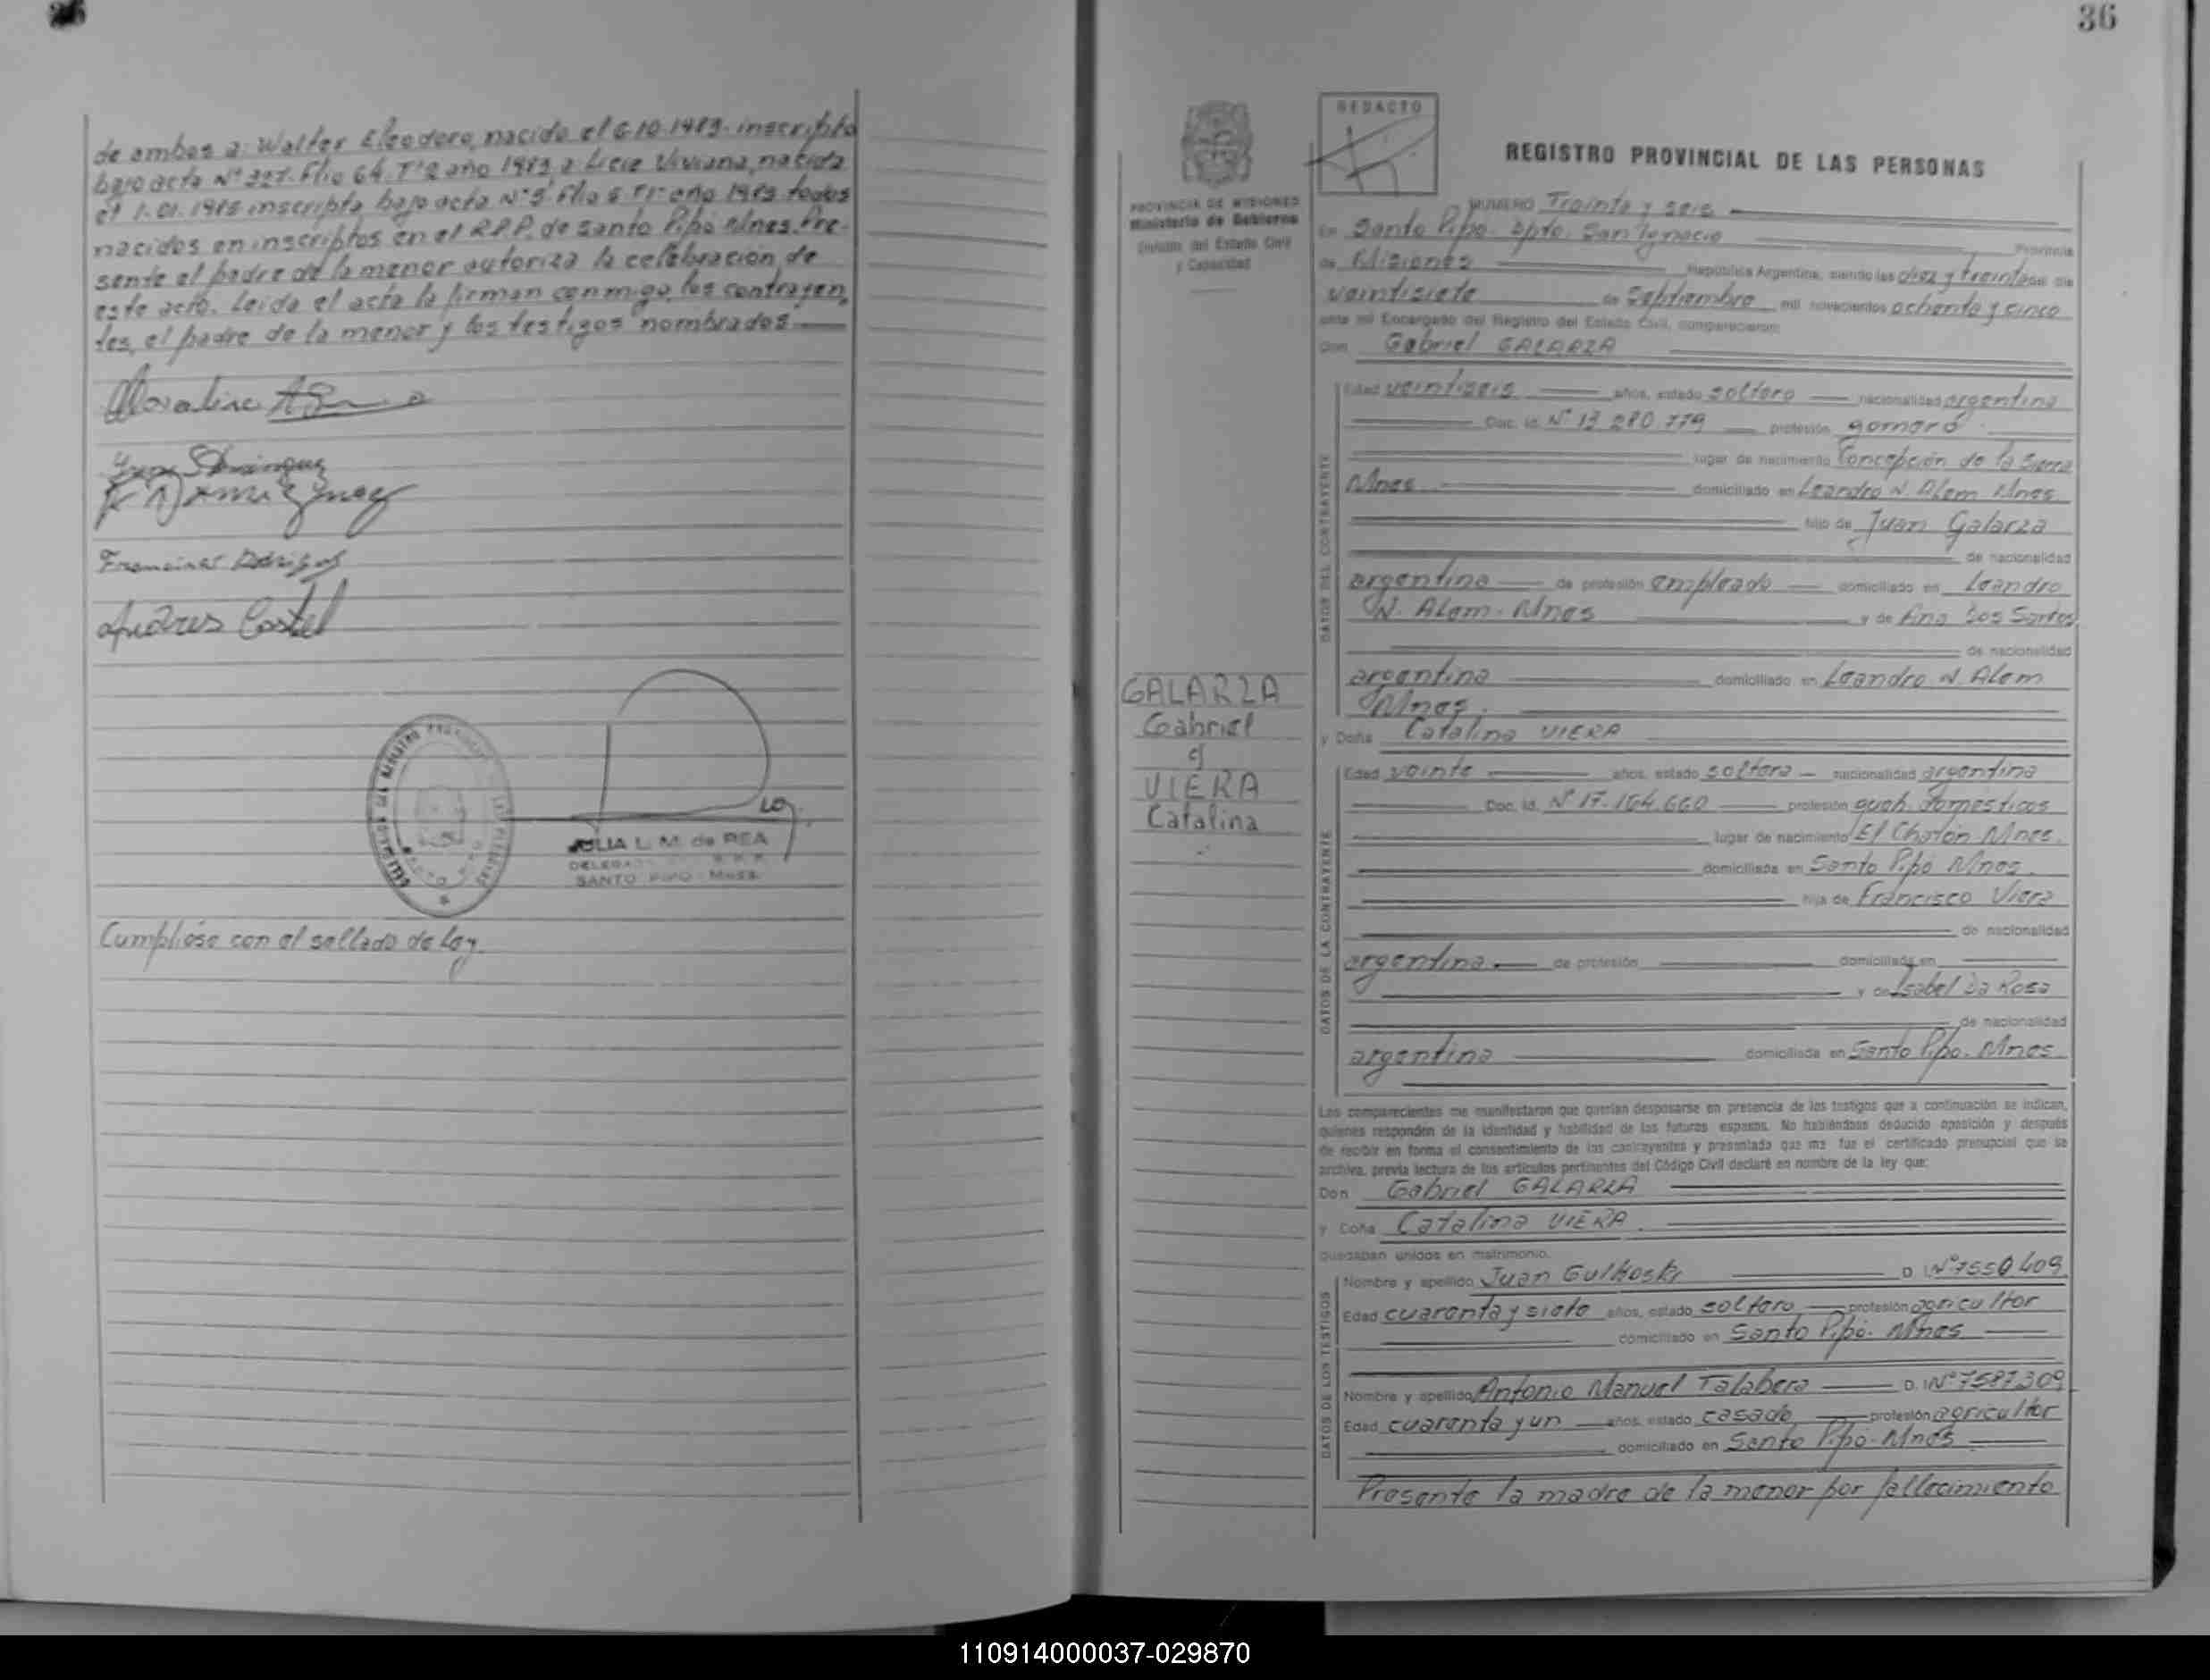 de ambos a: Walter Eleodoro, nacido el 6-10-1983- inscripto
bajo acta Nº 327- Flio 64. Tº2 año 1983 a Licie Viviana, nacida
el 1-01-1985 inscripta bajo acta Nº5 Flio 5 Tº1 año 1985 todos
nacidos en inscriptos en el R.P.P. de Santo Pipó Mnes. Pre-
sente el padre de la menor autoriza la celebración de
este acto. Leida el acta la firman conmigo, los contrayen
tes, el padre de la menor y los testigos nombrados.
Andres Costel
JULIA L. M. de REA
SANTO PIPO - Mnes.
Cumplióse con el sellado de Ley.
36
REDACTO
REGISTRO PROVINCIAL DE LAS PERSONAS
PROVINCIA DE MISIONES
Ministerio de Gobierno
División del Estado Civil
y Capacidad
NUMERO Treinta y seis
En Santo Pipó. Dpto. San Ignacio Provincia
de Misiones República Argentina, siendo las diez y treinta del día
veintisiete de Septiembre mil novecientos ochenta y cinco
ante mí Encargado del Registro del Estado Civil, comparecieron:
Don Gabriel GALARZA
DATOS DEL CONTRAYENTE
Edad veintiseis años, estado soltero nacionalidad argentina
Doc. Id. Nº 13.280.779 profesión gomero
lugar de nacimiento Concepción de la Sierra
Mnes domiciliado en Leandro N. Alem Mnes.
hijo de Juan Galarza
de nacionalidad
argentina de profesión empleado domiciliado en Leandro
N. Alem- Mnes y de Ana Dos Santos
de nacionalidad
argentina domiciliado en Leandro N. Alem
Mnes.
GALARZA
Gabriel
c/
VIERA
Catalina
y Doña Catalina VIERA
DATOS DE LA CONTRAYENTE
Edad veinte años, estado soltera nacionalidad argentina
Doc. Id. Nº 17.164.660 profesión queh. domesticos
lugar de nacimiento El Chatón Mnes.
domiciliada en Santo Pipó Mnes.
hija de Francisco Viera
de nacionalidad
argentina de profesión domiciliado en
y de Isabel Da Rosa
de nacionalidad
argentina domiciliada en Santo Pipó. Mnes
Los comparecientes me manifestaron que querían desposarse en presencia de los testigos que a continuación se indican,
quienes responden de la identidad y habilidad de los futuros esposos. No habiéndose deducido oposición y después
de recibir en forma el consentimiento de los contrayentes y presentado que me fue el certificado prenupcial que se
archiva, previa lectura de los artículos pertinentes del Código Civil declaré en nombre de la ley que:
Don Gabriel GALARZA
y Doña Catalina VIERA.
quedaban unidos en matrimonio.
DATOS DE LOS TESTIGOS
Nombre y apellido Juan Gulkoski D. I. Nº 7550.409
Edad cuarenta y siete años, estado soltero profesión agricultor
domiciliado en Santo Pipó. Mnes
Nombre y apellido Antonio Manuel Talabera D. I. Nº 7587309
Edad cuarenta y un años, estado casado profesión agricultor
domiciliado en Santo Pipó- Mnes
Presente la madre de la menor por fallecimiento
110914000037-029870